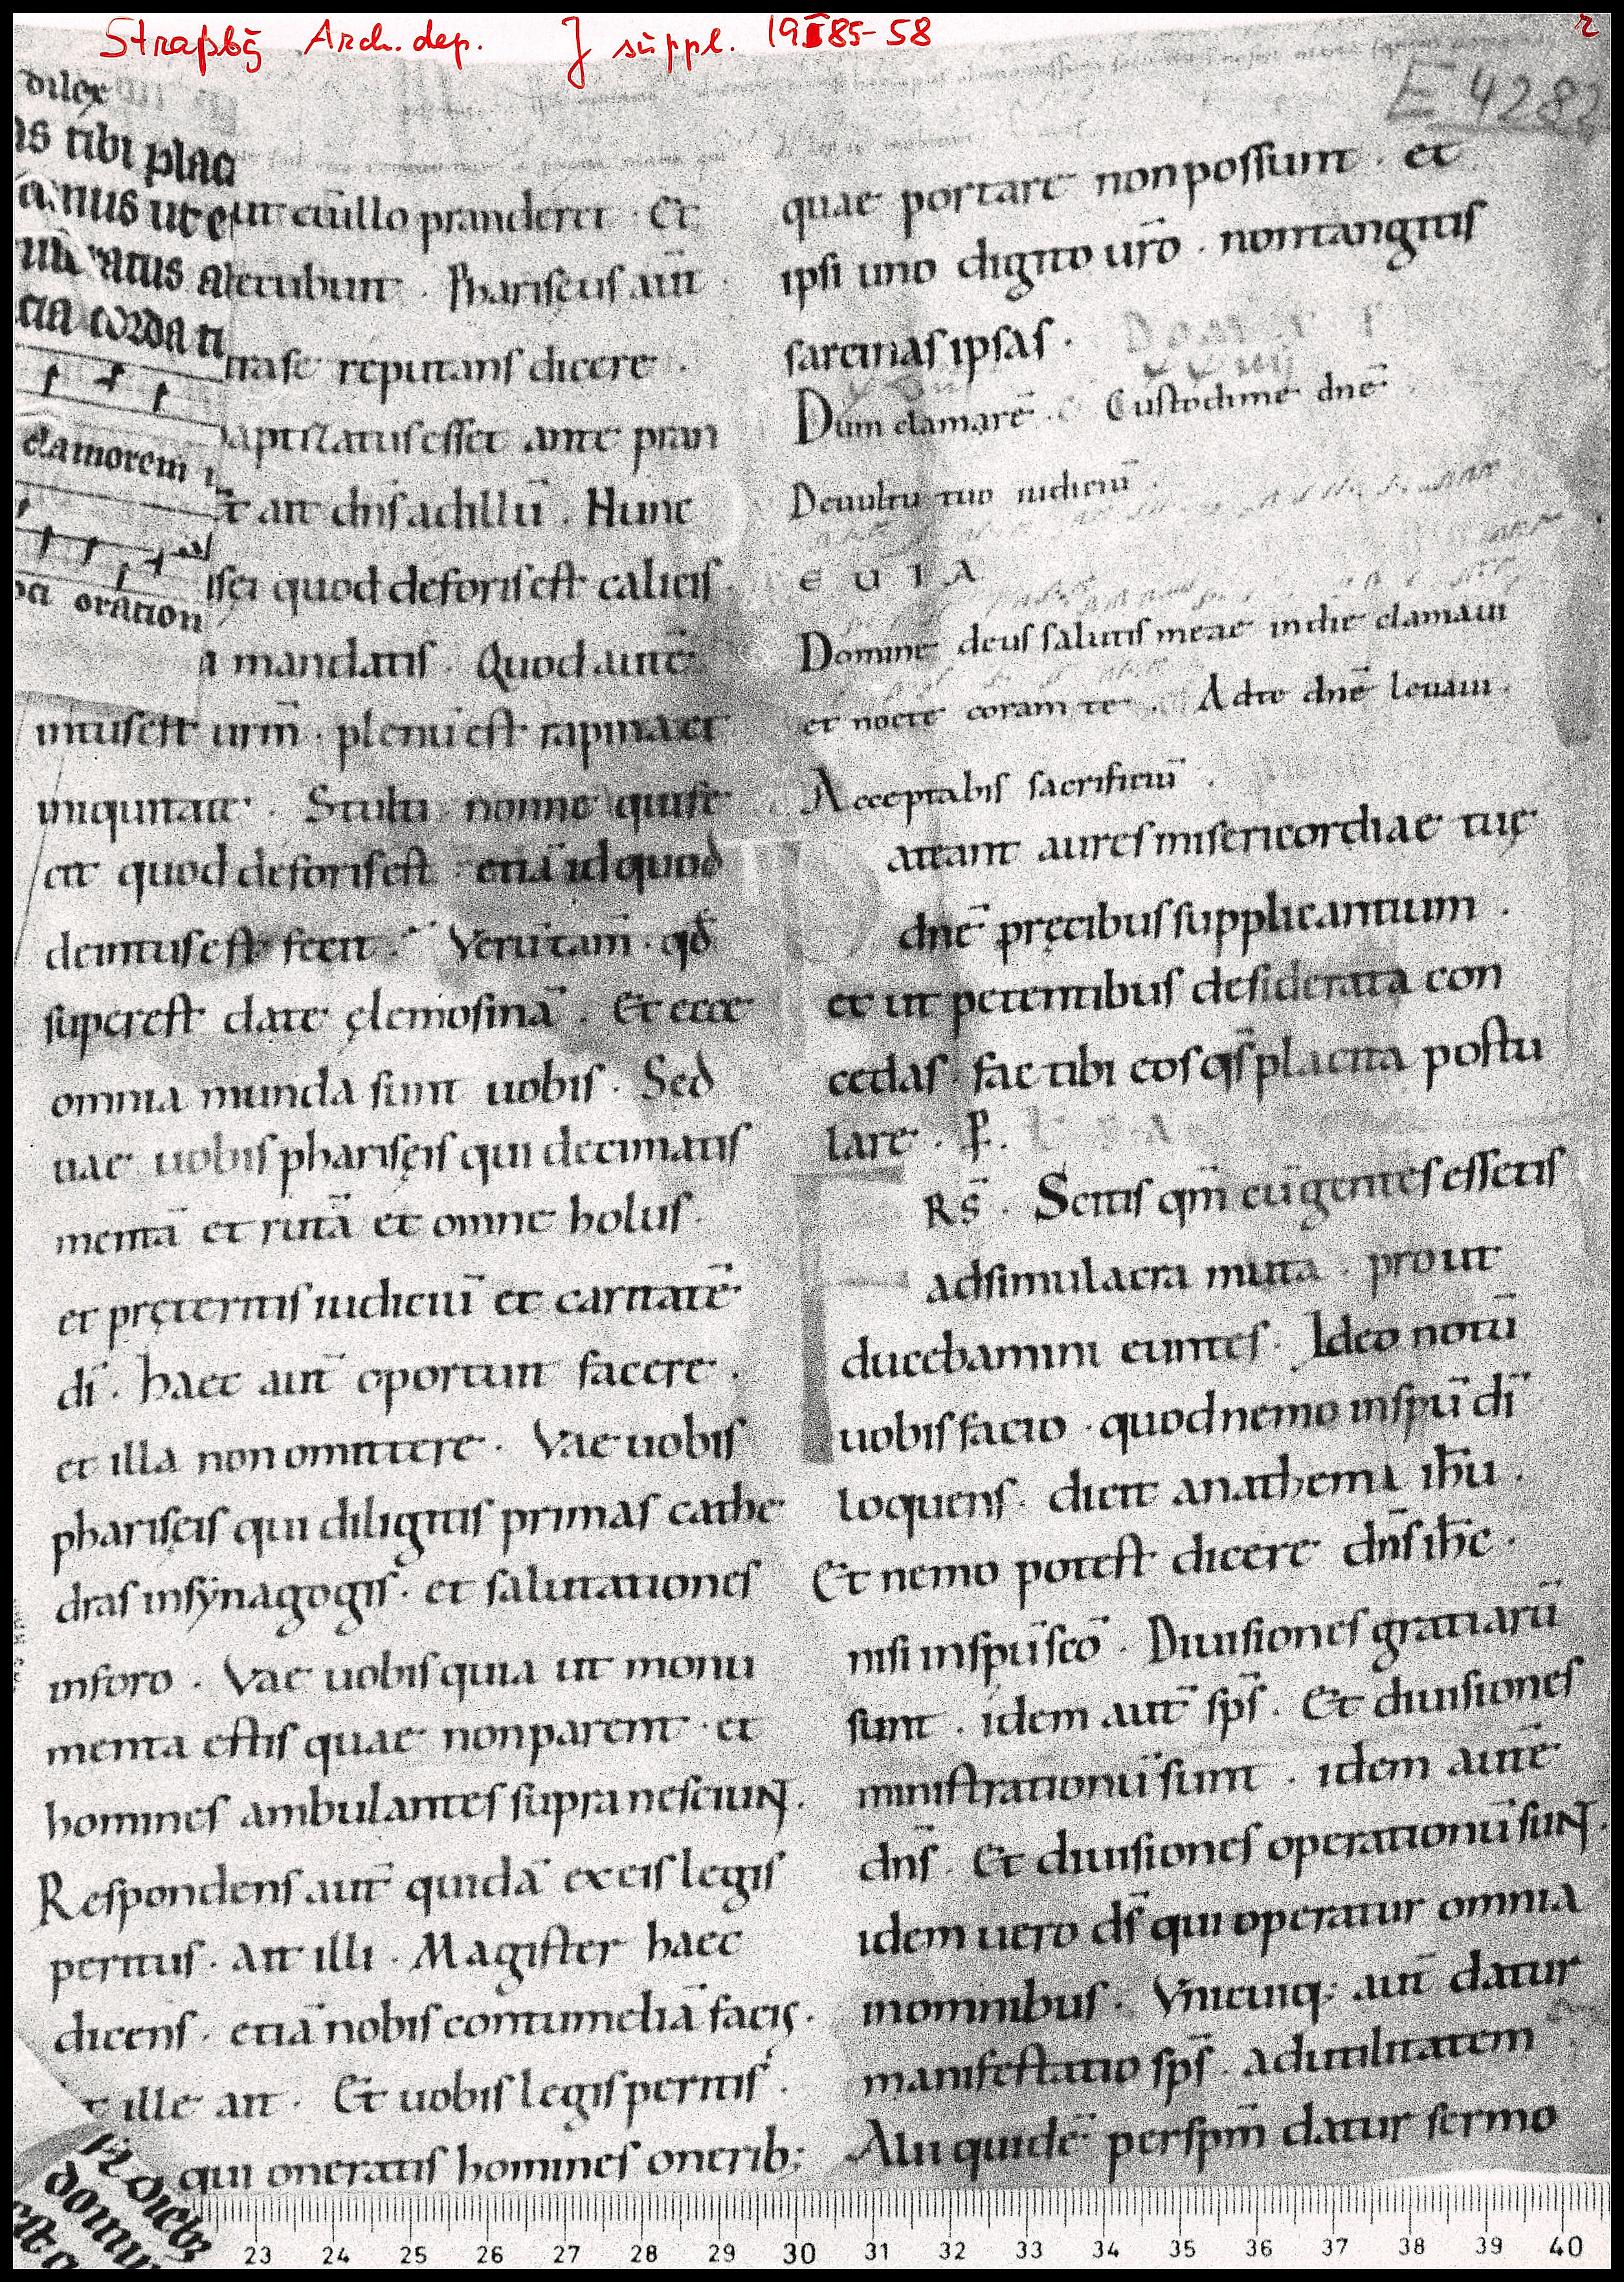 Straßbg Arch. dep. J suppl. 1985-58
r
E 4282
dilex
as tibi plac
anus ut e
ratus a
cia corda n
clamorem
oration
ut cū illo pranderet · Et
recubuit · Phariseus aut̄ ·
tra se reputans dicere ·
baptizatus esset ante pran
t ait dn̄s ad illū · Hunc
isei quod deforis est calicis
a mandatis · Quod autē
intus est urm̄ · plenū est rapina et
iniquitate · Stulti nonne qui fe
cit quod deforis est · etiā id quod
deintus est fecit · Verūtam̄ · qd̄
superest date elemosinā · Et ecce
omnia munda sunt uobis · Sed
uae uobis phariseis qui decimatis
mentā et rutā et omne holus ·
et preteritis iudiciū et caritatē
dī · haec aut̄ oportuit facere ·
et illa non omittere · Vae uobis
phariseis qui diligitis primas cathe
dras in synagogis · et salutationes
in foro · Vae uobis quia ut monu
menta estis quae non parent · et
homines ambulantes supra nesciunt ·
Respondens aut̄ quidā ex eis legis
peritus · ait illi · Magister haec
dicens · etiā nobis contumeliā facis ·
t ille ait · Et uobis legis peritis ·
qui oneratis homines onerib;
dieb;
quae portare non possunt · et
ipsi uno digito uro̅ · non tangitis
sarcinas ipsas ·
Dum clamarē · Custodi me dnē
De uultu tuo iudiciū ·
E U I A
Domine deus salutis meae in die clamaui
et nocte coram te · Ad te dnē leuaui ·
Acceptabis sacrificiū ·
ateant aures misericordiae tuę
dnē pręcibus supplicantium ·
et ut petentibus desiderata con
cedas · fac tibi eos qs̄ placita postu
lare · P̄ ·
RS̄ · Scitis qm̄ cū gentes essetis
ad simulacra muta · prout
ducebamini euntes · Ideo notū
uobis facio · quod nemo in spū dī
loquens · dicit anathema ihū ·
Et nemo potest dicere dn̄s ihc̄ ·
nisi in spū scō · Diuisiones gratiarū
sunt · idem aut̄ sps̄ · Et diuisiones
ministrationū sunt · idem autē
dn̄s · Et diuisiones operationū sunt ·
idem uero ds̄ qui operatur omnia
in omnibus · Vnicuiq; aut̄ datur
manifestatio sps̄ · ad utilitatem
Alii quidē per spm̄ datur sermo
23 24 25 26 27 28 29 30 31 32 33 34 35 36 37 38 39 40